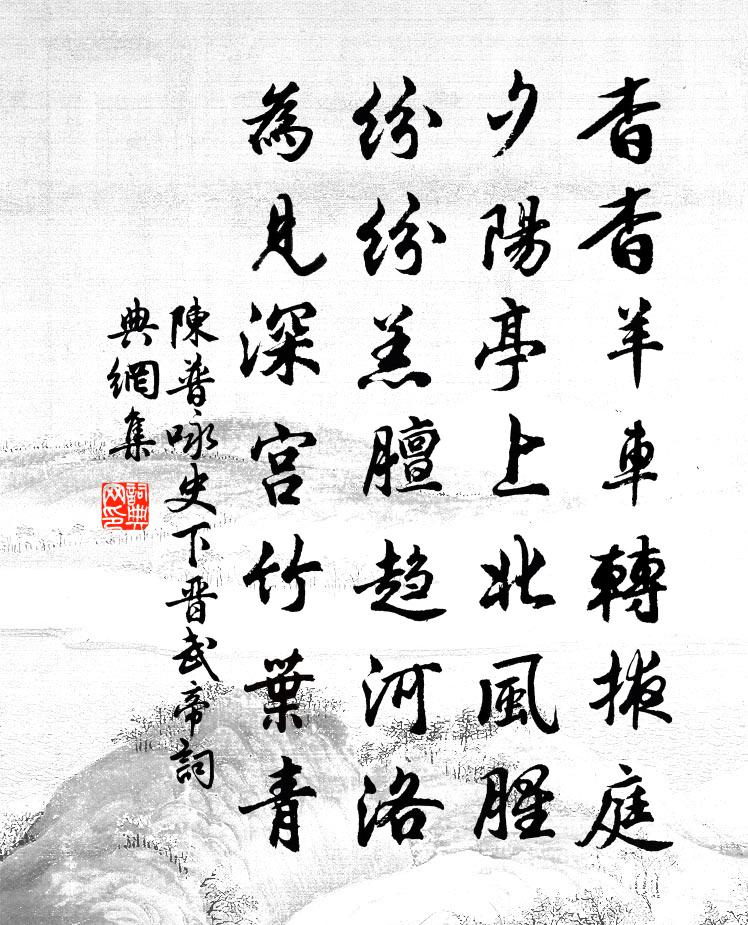 杳杳羊車轉掖庭
夕陽亭上北風腥
紛紛羔膻趋河洛
為見深宮竹葉青
陳普咏史下晋武帝詞
典網集
詞典网印